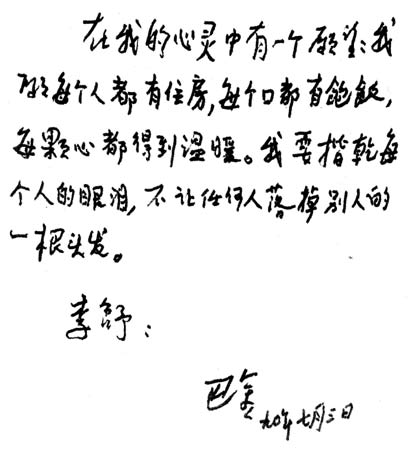 在我的心灵中有一个愿望:我
愿每个人都有住房,每个口都有飽飯,
每颗心都得到温暖。我要揩乾每
个人的眼泪,不让任何人落掉别人的
一根头发。
李舒:
巴金 九〇年七月三日